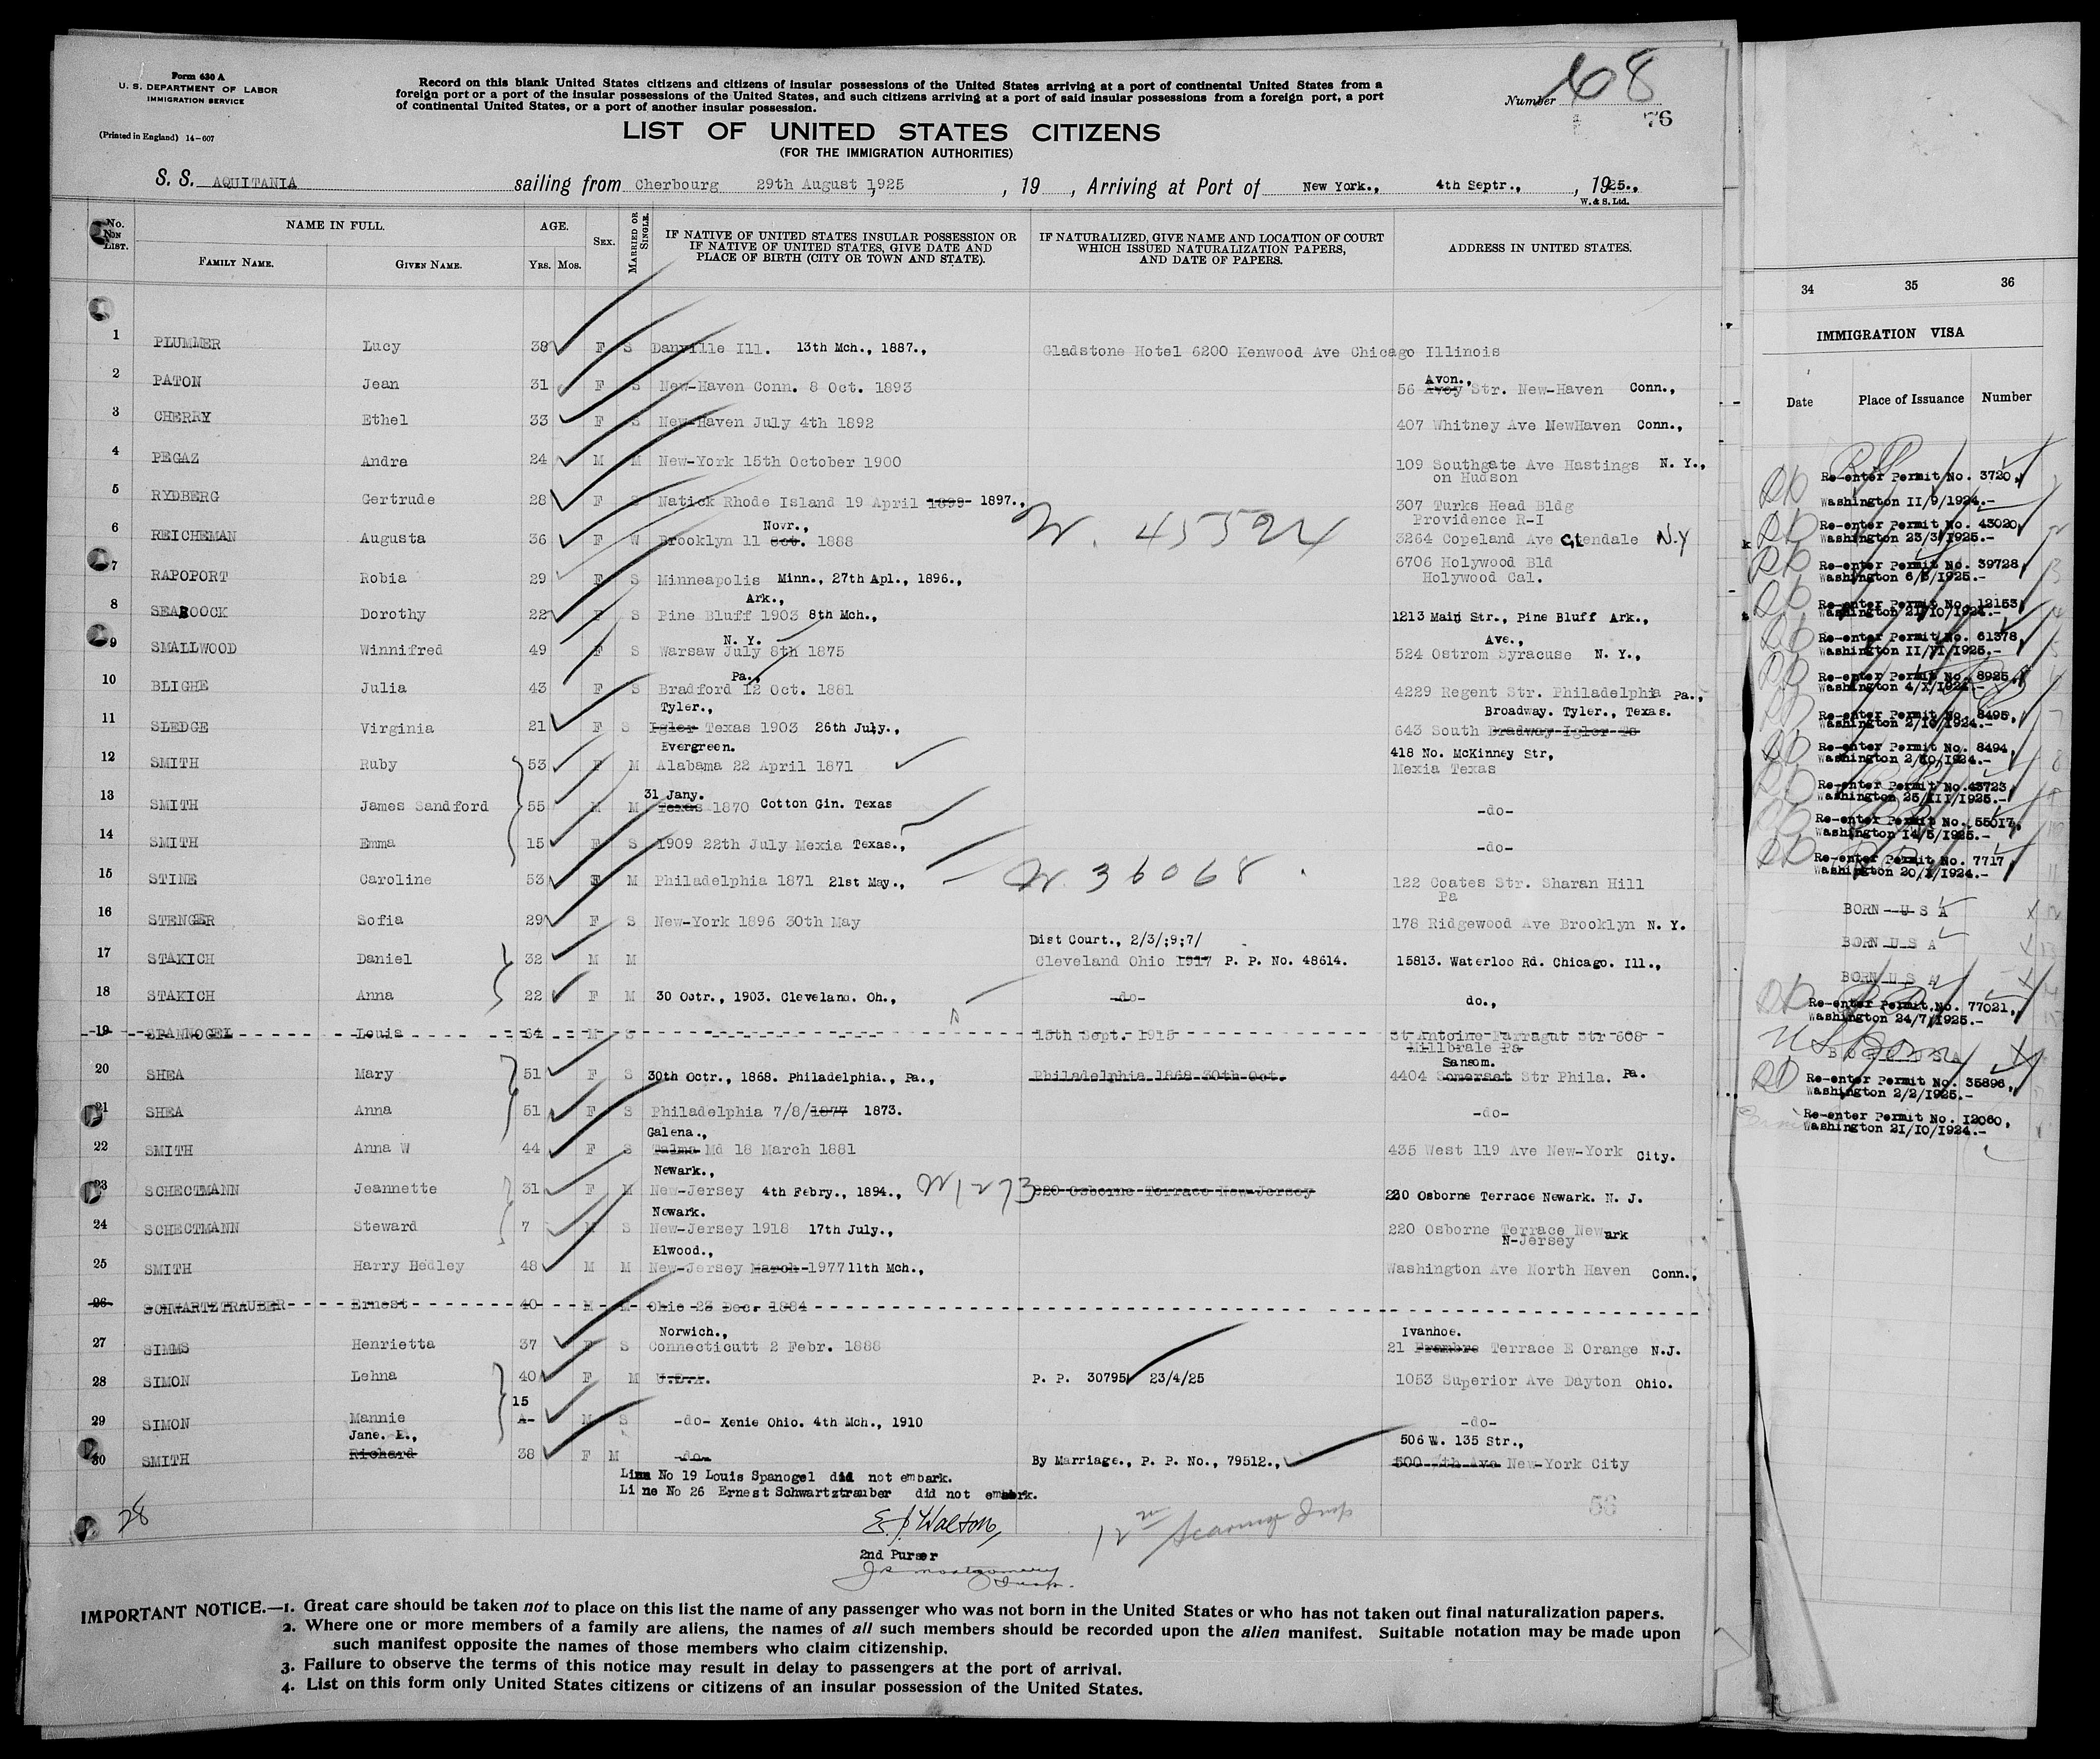 Form 630 A
U. S. DEPARTMENT OF LABOR
IMMIGRATION SERVICE
(Printed in England) 14-607
Record on this blank United States citizens and citizens of insular possessions of the United States arriving at a port of continental United States from a
foreign port or a port of the insular possessions of the United States, and such citizens arriving at a port of said insular possessions from a foreign port, a port
of continental United States, or a port of another insular possession.
Number 68
76
LIST OF UNITED STATES CITIZENS
(FOR THE IMMIGRATION AUTHORITIES)
S. S. AQUITANIA sailing from Cherbourg 29th August 1925, 19 , Arriving at Port of New York., 4th Septr., , 1925.,
W. & S. Ltd.
No. ON LIST. NAME IN FULL. FAMILY NAME. GIVEN NAME. AGE. YRS. MOS. SEX. MARRIED OR SINGLE.
IF NATIVE OF UNITED STATES INSULAR POSSESSION OR
IF NATIVE OF UNITED STATES, GIVE DATE AND
PLACE OF BIRTH (CITY OR TOWN AND STATE).
IF NATURALIZED, GIVE NAME AND LOCATION OF COURT
WHICH ISSUED NATURALIZATION PAPERS,
AND DATE OF PAPERS.
ADDRESS IN UNITED STATES.
1 PLUMMER Lucy 38 F S Danville Ill. 13th Mch., 1887., Gladstone Hotel 6200 Kenwood Ave Chicago Illinois
Avon.,
2 PATON Jean 31 F S New-Haven Conn. 8 Oct. 1893 56 Avoy Str. New-Haven Conn.,
3 CHERRY Ethel 33 F S New-Haven July 4th 1892 407 Whitney Ave NewHaven Conn.,
4 PEGAZ Andra 24 M M New-York 15th October 1900 109 Southgate Ave Hastings N. Y.,
on Hudson
5 RYDBERG Gertrude 28 F S Natick Rhode Island 19 April 1899 1897., 307 Turks Head Bldg
Providence R-I
Novr.,
6 REICHEMAN Augusta 36 F W Brooklyn 11 Oct. 1888 N. 45524 3264 Copeland Ave Glendale N.Y
7 RAPOPORT Robia 29 F S Minneapolis Minn., 27th Apl., 1896., 6706 Holywood Bld
Holywood Cal.
Ark.,
8 SEABOOCK Dorothy 22 F S Pine Bluff 1903 8th Mch., 1213 Main Str., Pine Bluff Ark.,
N. Y. Ave.,
9 SMALLWOOD Winnifred 49 F S Warsaw July 8th 1875 524 Ostrom Syracuse N. Y.,
Pa.,
10 BLIGHE Julia 43 F S Bradford 12 Oct. 1881 4229 Regent Str. Philadelphia Pa.,
Tyler., Broadway. Tyler., Texas.
11 SLEDGE Virginia 21 F S Igler Texas 1903 26th July., 643 South Bradway Igler Ts
Evergreen. 418 No. McKinney Str,
12 SMITH Ruby 53 F M Alabama 22 April 1871 Mexia Texas
31 Jany.
13 SMITH James Sandford 55 M M Texas 1870 Cotton Gin. Texas -do-
14 SMITH Emma 15 F S 1909 22th July Mexia Texas., -do-
15 STINE Caroline 53 F M Philadelphia 1871 21st May., N. 36068 122 Coates Str. Sharan Hill
Pa
16 STENGER Sofia 29 F S New-York 1896 30th May 178 Ridgewood Ave Brooklyn N. Y.
Dist Court., 2/3/;9;7/
17 STAKICH Daniel 32 M M Cleveland Ohio 1917 P. P. No. 48614. 15813. Waterloo Rd. Chicago. Ill.,
18 STAKICH Anna 22 F M 30 Octr., 1903. Cleveland. Oh., -do- do.,
19 SPANNOGEL Louis 64 M S 15th Sept. 1915 St Antoine Farragut Str 608
Millbrale Pa
Sansom.
20 SHEA Mary 51 F S 30th Octr., 1868. Philadelphia., Pa., Philadelphia 1868 30th Oct. 4404 Somerset Str Phila. Pa.
21 SHEA Anna 51 F S Philadelphia 7/8/1877 1873. -do-
Galena.,
22 SMITH Anna W 44 F S Talma Md 18 March 1881 435 West 119 Ave New-York City.
Newark.,
23 SCHECTMANN Jeannette 31 F M New-Jersey 4th Febry., 1894., N1273 220 Osborne Terrace New-Jersey 220 Osborne Terrace Newark. N. J.
Newark.
24 SCHECTMANN Steward 7 M S New-Jersey 1918 17th July., 220 Osborne Terrace Newark
N-Jersey
Elwood.,
25 SMITH Harry Hedley 48 M M New-Jersey March 1977 11th Mch., Washington Ave North Haven Conn.,
26 SCHWARTZTRAUBER Ernest 40 M M Ohio 23 Dec. 1884
Norwich., Ivanhoe.
27 SIMMS Henrietta 37 F S Connecticutt 2 Febr. 1888 21 Frembre Terrace E Orange N.J.
28 SIMON Lehna 40 F M U.D.A. P. P. 30795 23/4/25 1053 Superior Ave Dayton Ohio.
15
29 SIMON Mannie A- M S -do- Xenie Ohio. 4th Mch., 1910 -do-
Jane. E., 506 W. 135 Str.,
30 SMITH Richard 38 F M -do- By Marriage., P. P. No., 79512., 500 7th Ave New-York City
Line No 19 Louis Spanogel did not embark.
Line No 26 Ernest Schwartztrauber did not embark.
28
56
E. J. Walton,
2nd Purser
IMPORTANT NOTICE.—1. Great care should be taken not to place on this list the name of any passenger who was not born in the United States or who has not taken out final naturalization papers.
2. Where one or more members of a family are aliens, the names of all such members should be recorded upon the alien manifest. Suitable notation may be made upon
such manifest opposite the names of those members who claim citizenship.
3. Failure to observe the terms of this notice may result in delay to passengers at the port of arrival.
4. List on this form only United States citizens or citizens of an insular possession of the United States.
34 35 36
IMMIGRATION VISA
Date Place of Issuance Number
Re-enter Permit No. 3720,
Washington II/9/1924.-
Re-enter Permit No. 43020,
Washington 23/3/1925.-
Re-enter Permit No. 39728,
Washington 6/3/1925.-
Re-enter Permit No. 12153,
Washington 21/10/1924.-
Re-enter Permit No. 61378,
Washington II/VI/1925.-
Re-enter Permit No. 8925,
Washington 4/X/1924.-
Re-enter Permit No. 8495,
Washington 2/10/1924.-
Re-enter Permit No. 8494,
Washington 2/10/1924.-
Re-enter Permit No. 43723
Washington 25/III/1925.-
Re-enter Permit No. 55017,
Washington 14/5/1925.-
Re-enter Permit No. 7717,
Washington 20/X/1924.-
BORN U S A
BORN U S A
BORN U S A
Re-enter Permit No. 77021,
Washington 24/7/1925.-
US Born
BORN USA
Re-enter Permit No. 35896,
Washington 2/2/1925.-
Re-enter Permit No. I2060,
Washington 21/10/1924.-